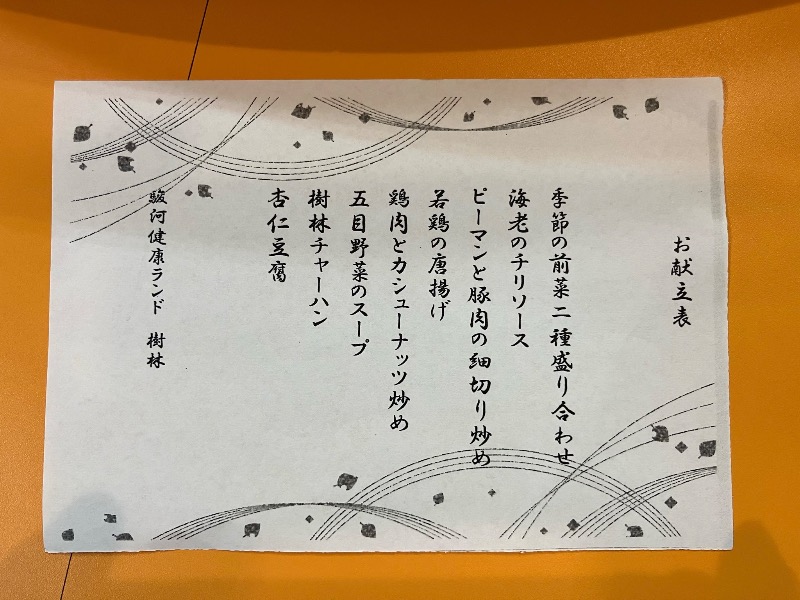 お献立表
季節の前菜二種盛り合わせ
海老のチリソース
ピーマンと豚肉の細切り炒め
若鶏の唐揚げ
鶏肉とカシューナッツ炒め
五目野菜のスープ
樹林チャーハン
杏仁豆腐
駿河健康ランド 樹林